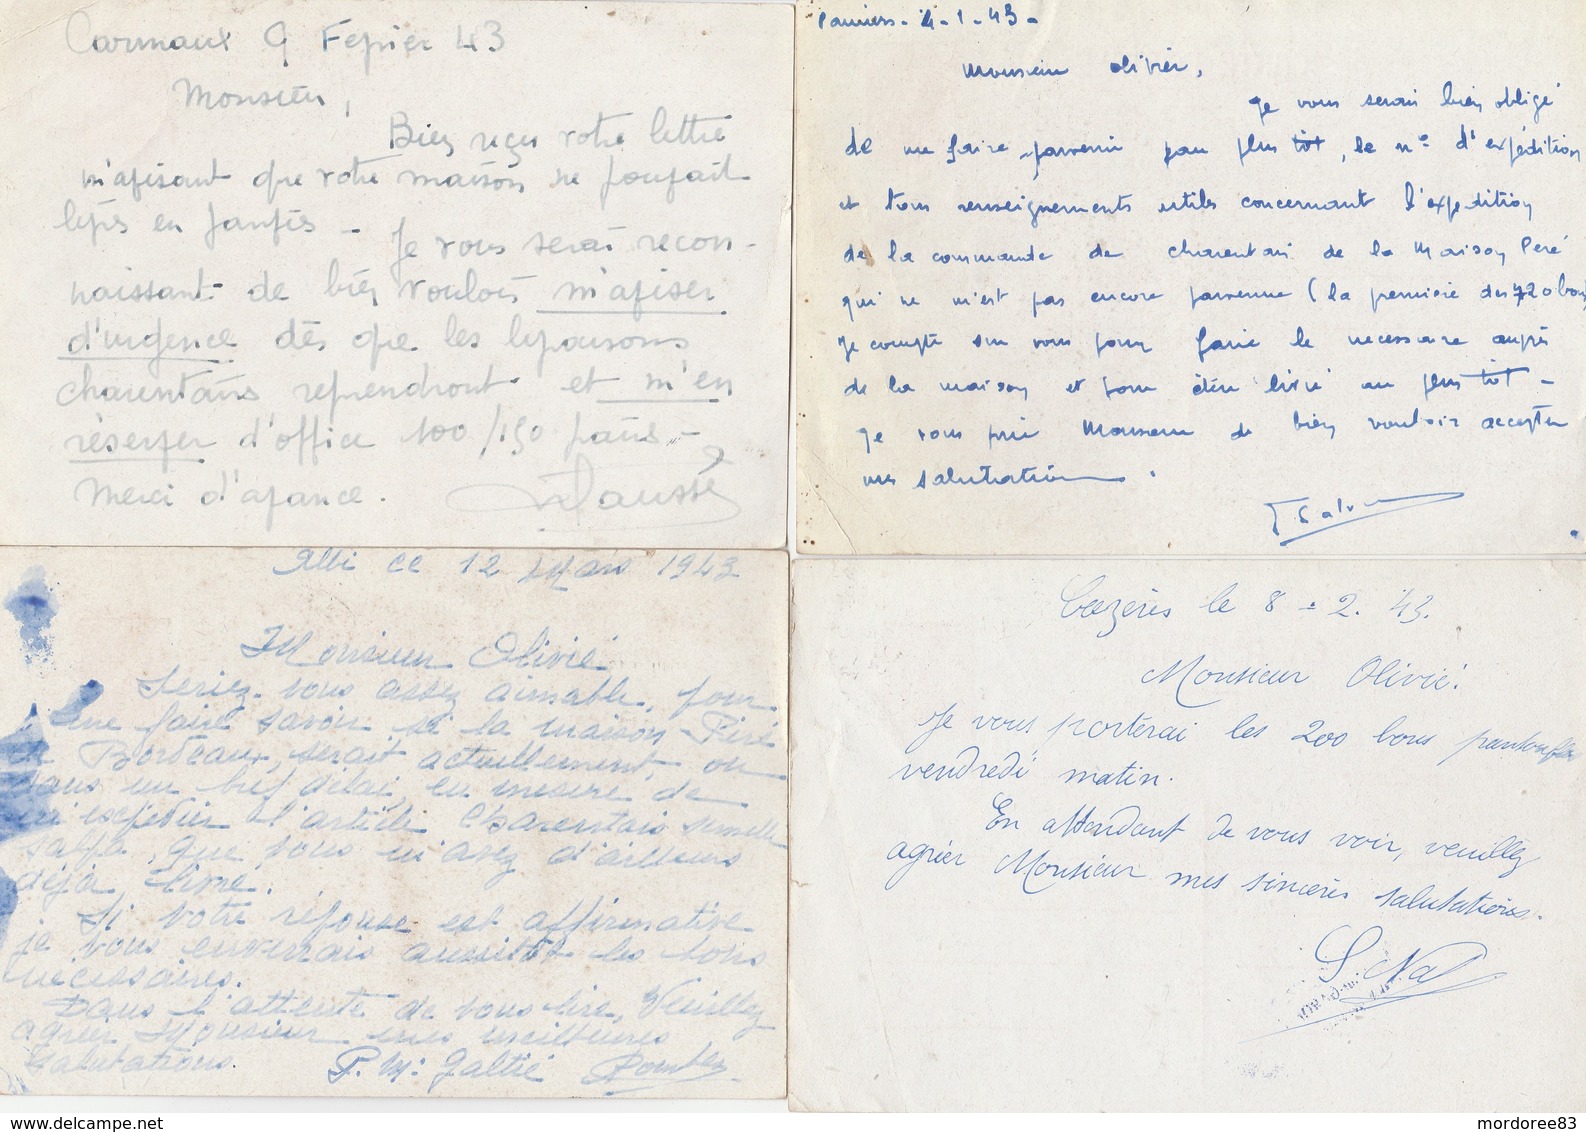 Carmaux 9 Février 43
Monsieur,
Bien reçu votre lettre
m'avisant que votre maison ne pouvait
livrer en
Je vous serai recon-
naissant de bien vouloir m'aviser
d'urgence dès que les livraisons
charentais reprendront et m'en
réserver d'office 100/150 paires -
Merci d'avance.
Pamiers - 4-1-43-
Monsieur Olivier,
Je vous serai bien obligé
de me faire parvenir par plus tôt, le n° d'expédition
et tous renseignements utiles concernant l'expédition
de la commande de charentais de la Maison Péré
qui ne m'est pas encore parvenue (la première des 720 bons
Je compte sur vous pour faire le necessaire auprès
de la maison et pour être livré au plus tôt -
Je vous prie Monsieur de bien vouloir accepter
mes salutations.
Albi ce 12 Mars 1943
Monsieur Olivié
Seriez-vous assez aimable, pour
me faire savoir si la maison Péré
de Bordeaux, serait actuellement, ou
dans un bref délai, en mesure de
m'expédier l'article Charentais semelle
que vous m'avez d'ailleurs
déjà livré.
Si votre réponse est affirmative
je vous enverrais aussitôt les bons
nécessaires.
Dans l'attente de vous lire, Veuillez
agréer Monsieur mes meilleures
salutations.
P. M: Galtié
Cazères le 8-2. 43.
Monsieur Olivié.
Je vous porterai les 200 bons pantoufles
vendredi matin.
En attendant de vous voir, veuillez
agréer Monsieur mes sincères salutations.
S. Nal
www.delcampe.net
mordoree83